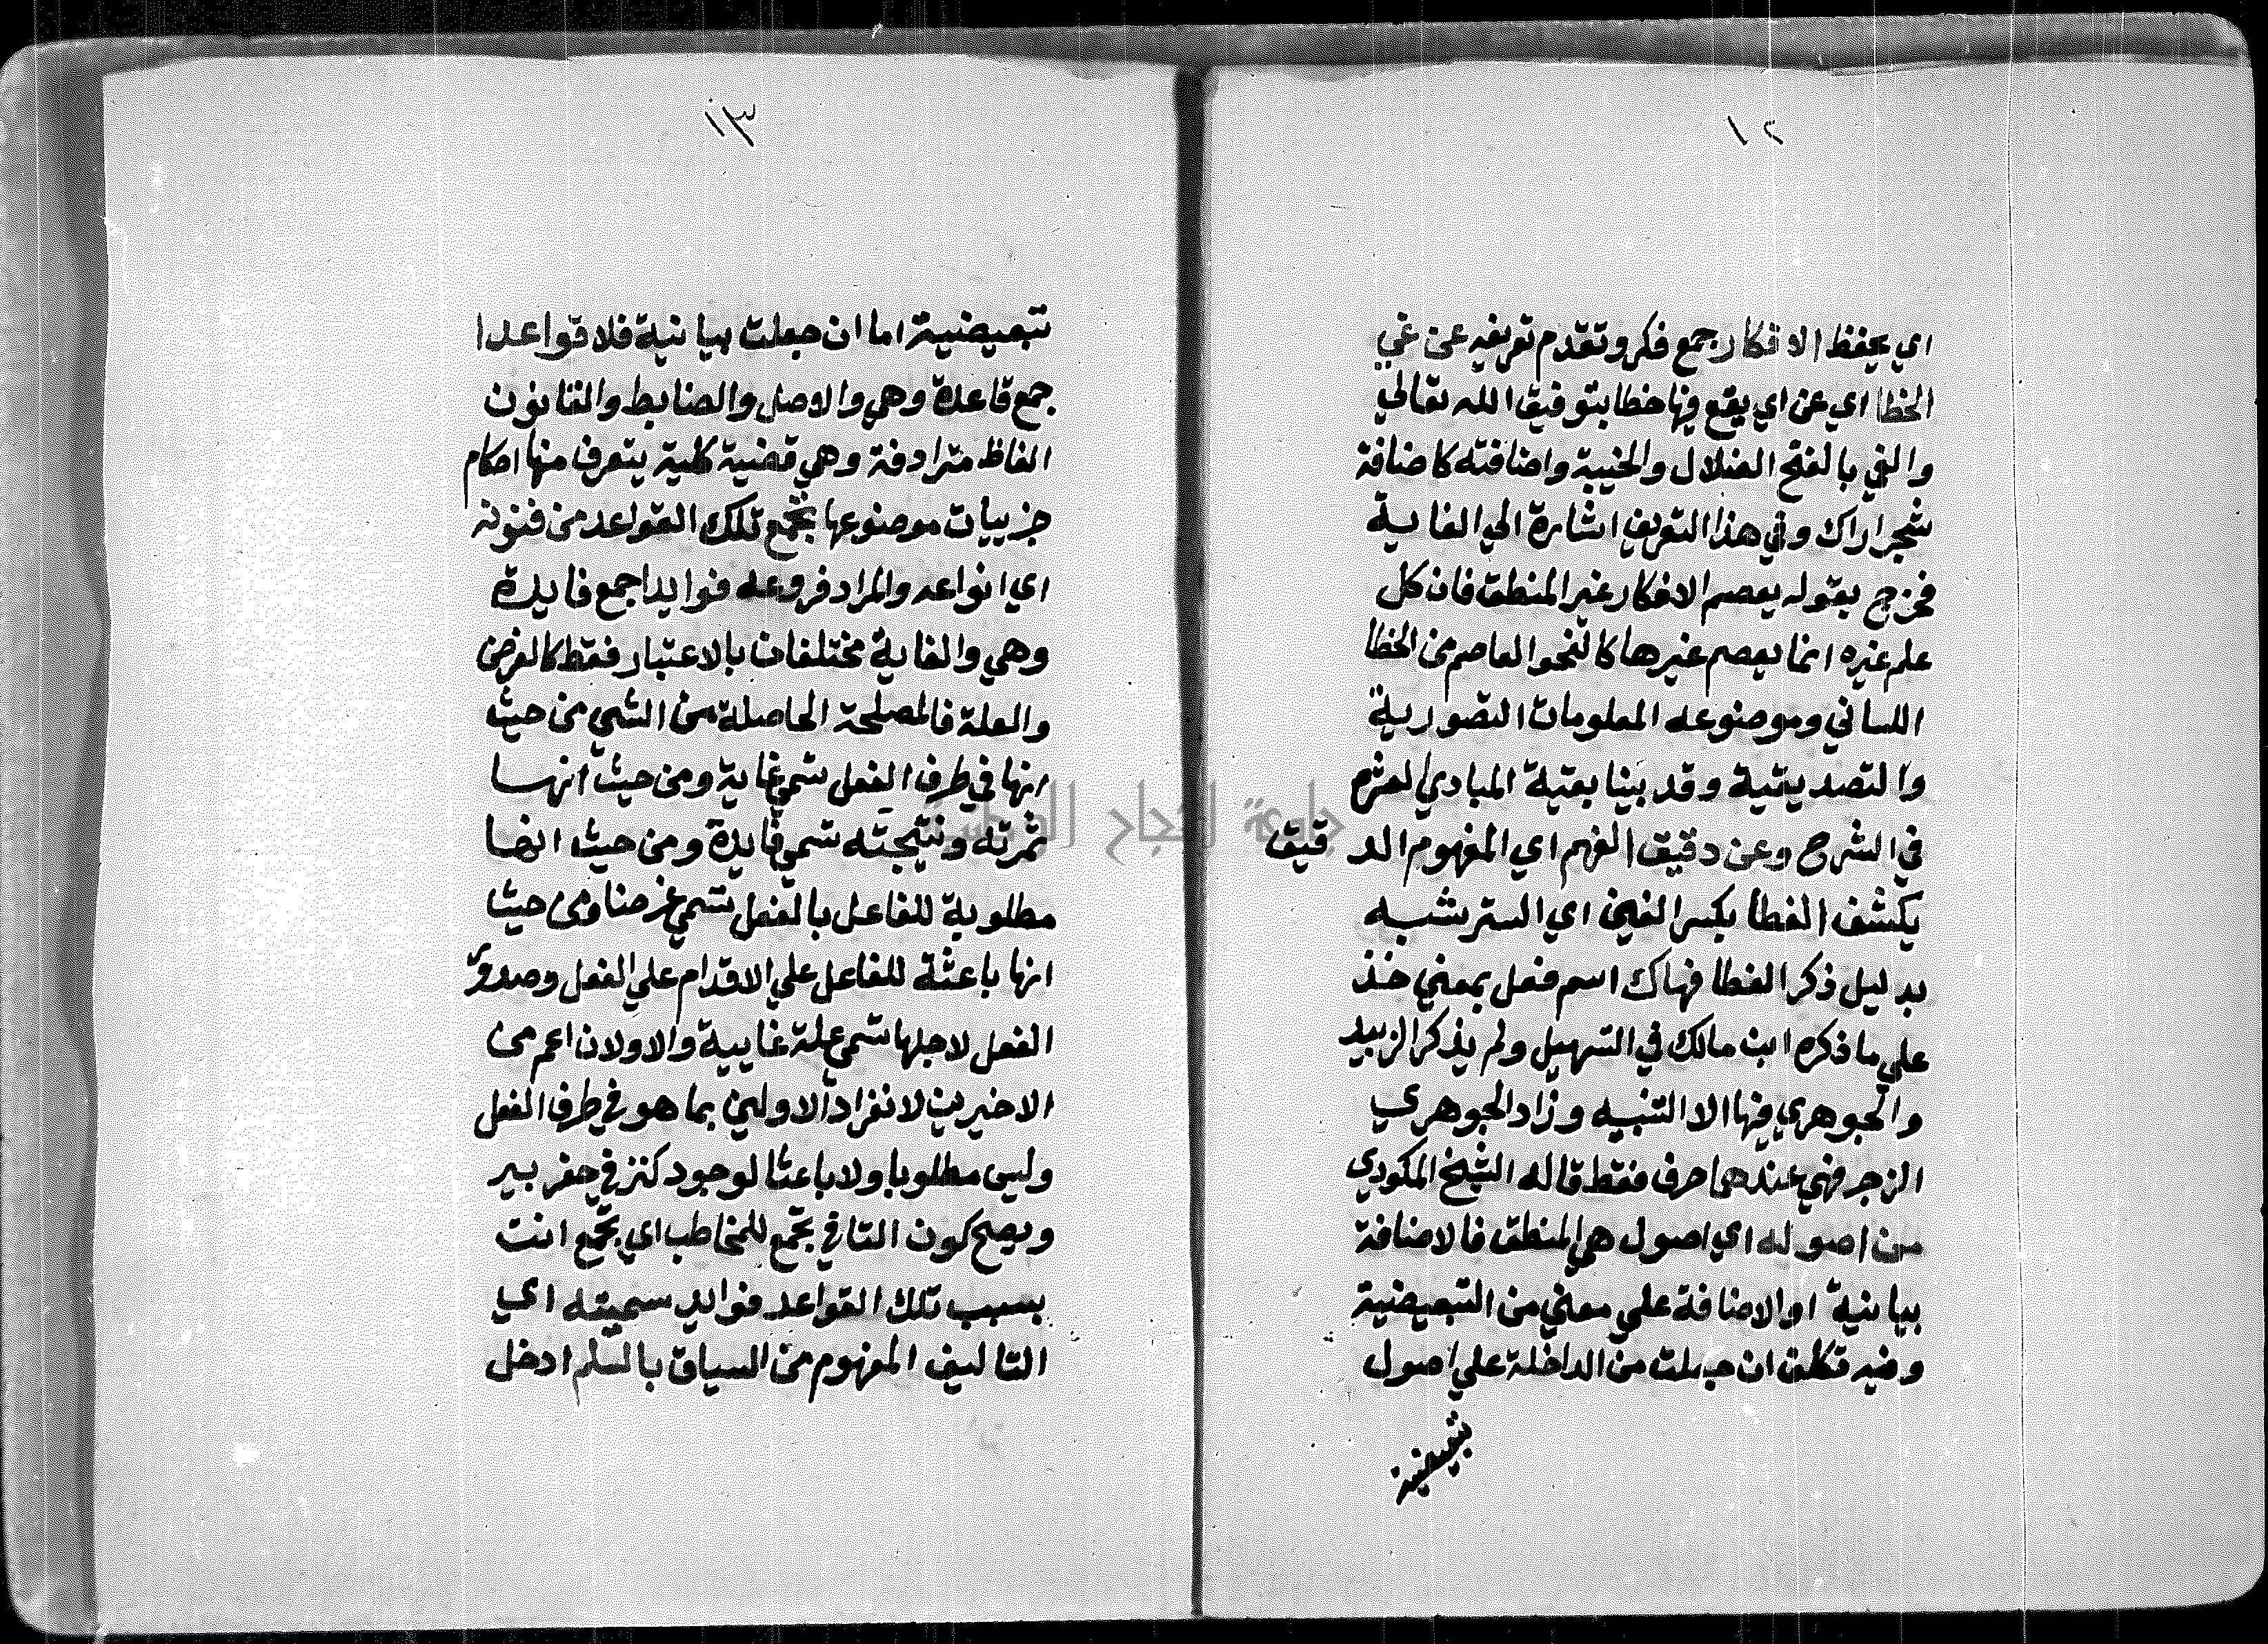 ١٢
اي يحفظ الافكار جمع فكر وتقدم تعريفه عن غي
الخطا اي عن اي يقع فيها خطا بتوفيق الله تعالي
والغي بالفتح الضلال والخيبة واضافته كاضافة
شجر اراك وفي هذا التعريف اشارة الي الغاية
فخرج بقوله يعصم الافكار غير المنطق فان كل
علم غيره انما يعصم غيرها كالنحو العاصم من الخطا
اللساني وموضوعه المعلومات التصورية
والتصديقية وقد بينا بقية المبادي العشرة
في الشرح وعن دقيق الفهم اي المفهوم الدقيق
يكشف الغطا بكسر الغين اي الستر شبه
بدليل ذكر الغطا فهاك اسم فعل بمعني خذ
علي ما ذكره ابن مالك في التسهيل ولم يذكر الزبيد
والجوهري فيها الا التنبيه وزاد الجوهري
الزجر فهي عندهما حرف فقط قاله الشيخ المكودي
من اصوله اي اصول هي المنطق فالاضافة
بيانية او الاضافة علي معني من التبعيضية
وفيه تكلف ان جعلت من الداخلة علي اصول
تبعيضية
١٣
تبعيضية اما ان جعلت بيانية فلا قواعدا
جمع قاعدة وهي والاصل والضابط والقانون
الفاظ مترادفة وهي قضية كلية يتعرف منها احكام
جزييات موضوعها تجمع تلك القواعد من فنونه
اي انواعه والمراد فروعه فوايدا جمع فايدة
وهي والغاية مختلفان بالاعتبار فقط كالغرض
والعلة فالمصلحة الحاصلة من الشي من حيث
انها في طرف الفعل تسمي غاية ومن حيث انها
ثمرته ونتيجته تسمي فايدة ومن حيث انها
مطلوبة للفاعل بالفعل تسمي غرضا ومن حيث
انها باعثة للفاعل علي الاقدام علي الفعل وصدور
الفعل لاجلها تسمي علة غايية والاولان اعم من
الاخيرين لانفراد الاولين بما هو في طرف الفعل
وليس مطلوبا ولا باعثا لوجود كنز في حفر بير
ويصح كون التا في تجمع للمخاطب اي تجمع انت
بسبب تلك القواعد فوايد سميته اي
التاليف المفهوم من السياق بالسلم ادخل